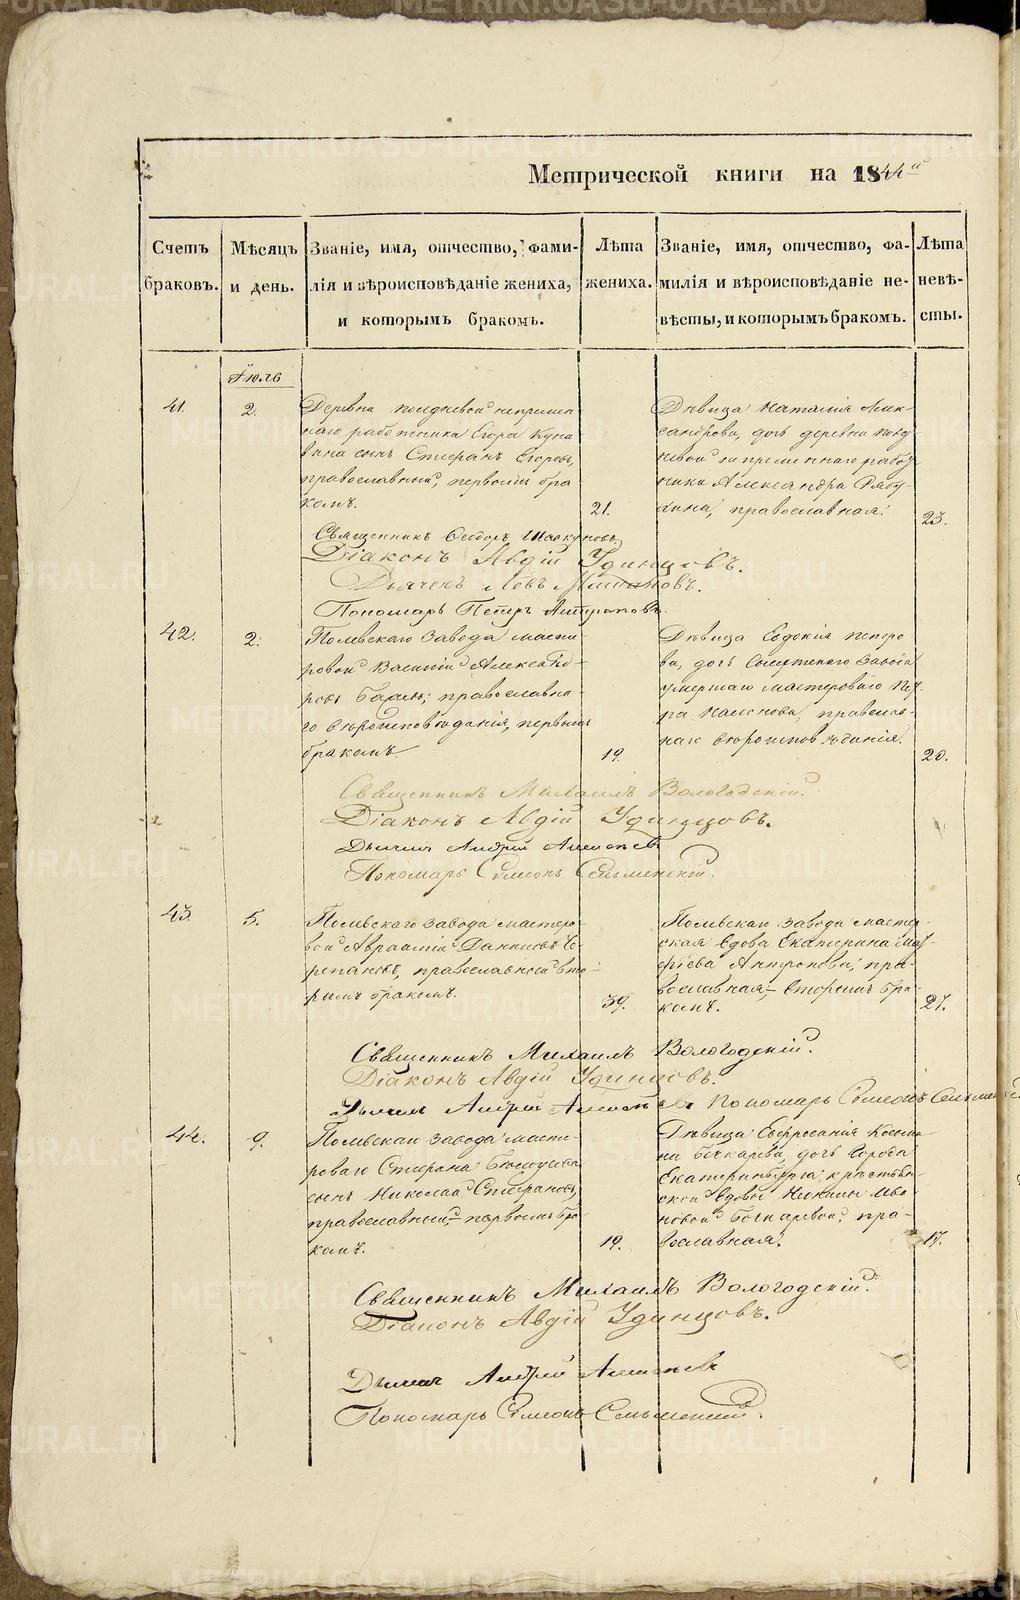 Метрической книги на 1844й
Счетъ браковъ.
Мѣсяцъ и день.
Званіе, имя, отчество, фами-
лія и вѣроисповѣданіе жениха,
и которымъ бракомъ.
Лѣта жениха.
Званіе, имя, отчество, фа-
милія и вѣроисповѣданіе не-
вѣсты, и которымъ бракомъ.
Лѣта невѣ-
сты.
Іюль
41.
2.
Деревни
работника Егора
сынъ Стефанъ Егоровъ,
православный, первымъ бра
комъ.
21.
Дѣвица Наталія Алек-
сандрова, дочь деревни
Александра
православная.
23.
Священникъ Ѳеодоръ
Діаконъ Авдій Удинцовъ.
Дьячекъ Левъ
Пономарь Петръ
42.
2.
Полевскаго завода масте-
ровой Василій Александ-
православна
го вѣроисповѣданія, первымъ
бракомъ.
19.
Дѣвица Евдокія Петро
ва, дочь Сысертскаго завода
умершаго мастероваго Пет-
ра православ-
наго вѣроисповѣданія.
20.
Священникъ Михаилъ Вологодскій.
Діаконъ Авдій Удинцовъ.
Дьячекъ Андрей
Пономарь Симеонъ
43.
5.
Полевскаго завода мастеро-
вой Авраамій Даниловъ Че-
репановъ, православный вто-
рымъ бракомъ.
39.
Полевскаго завода мастер-
ская вдова Екатерина Мат-
фіева Антропова, пра-
вославная, вторымъ бра-
комъ.
27.
Священникъ Михаилъ Вологодскій.
Діаконъ Авдій Удинцовъ.
Дьячекъ Андрей Пономарь Симеонъ
44.
9.
Полевскаго завода масте-
роваго Стефана
сынъ Николай Стефановъ,
православный, первымъ бра-
комъ.
19.
Дѣвица Евфросинія Косьми-
на Бочкарева, дочь города
Екатеринбурга крестьян-
ской вдовы Ива-
новой Бочкаревой, пра-
вославная.
17.
Священникъ Михаилъ Вологодскій.
Діаконъ Авдій Удинцовъ.
Дьячекъ Андрей
Пономарь Симеонъ
METRIKI.GASO-URAL.RU